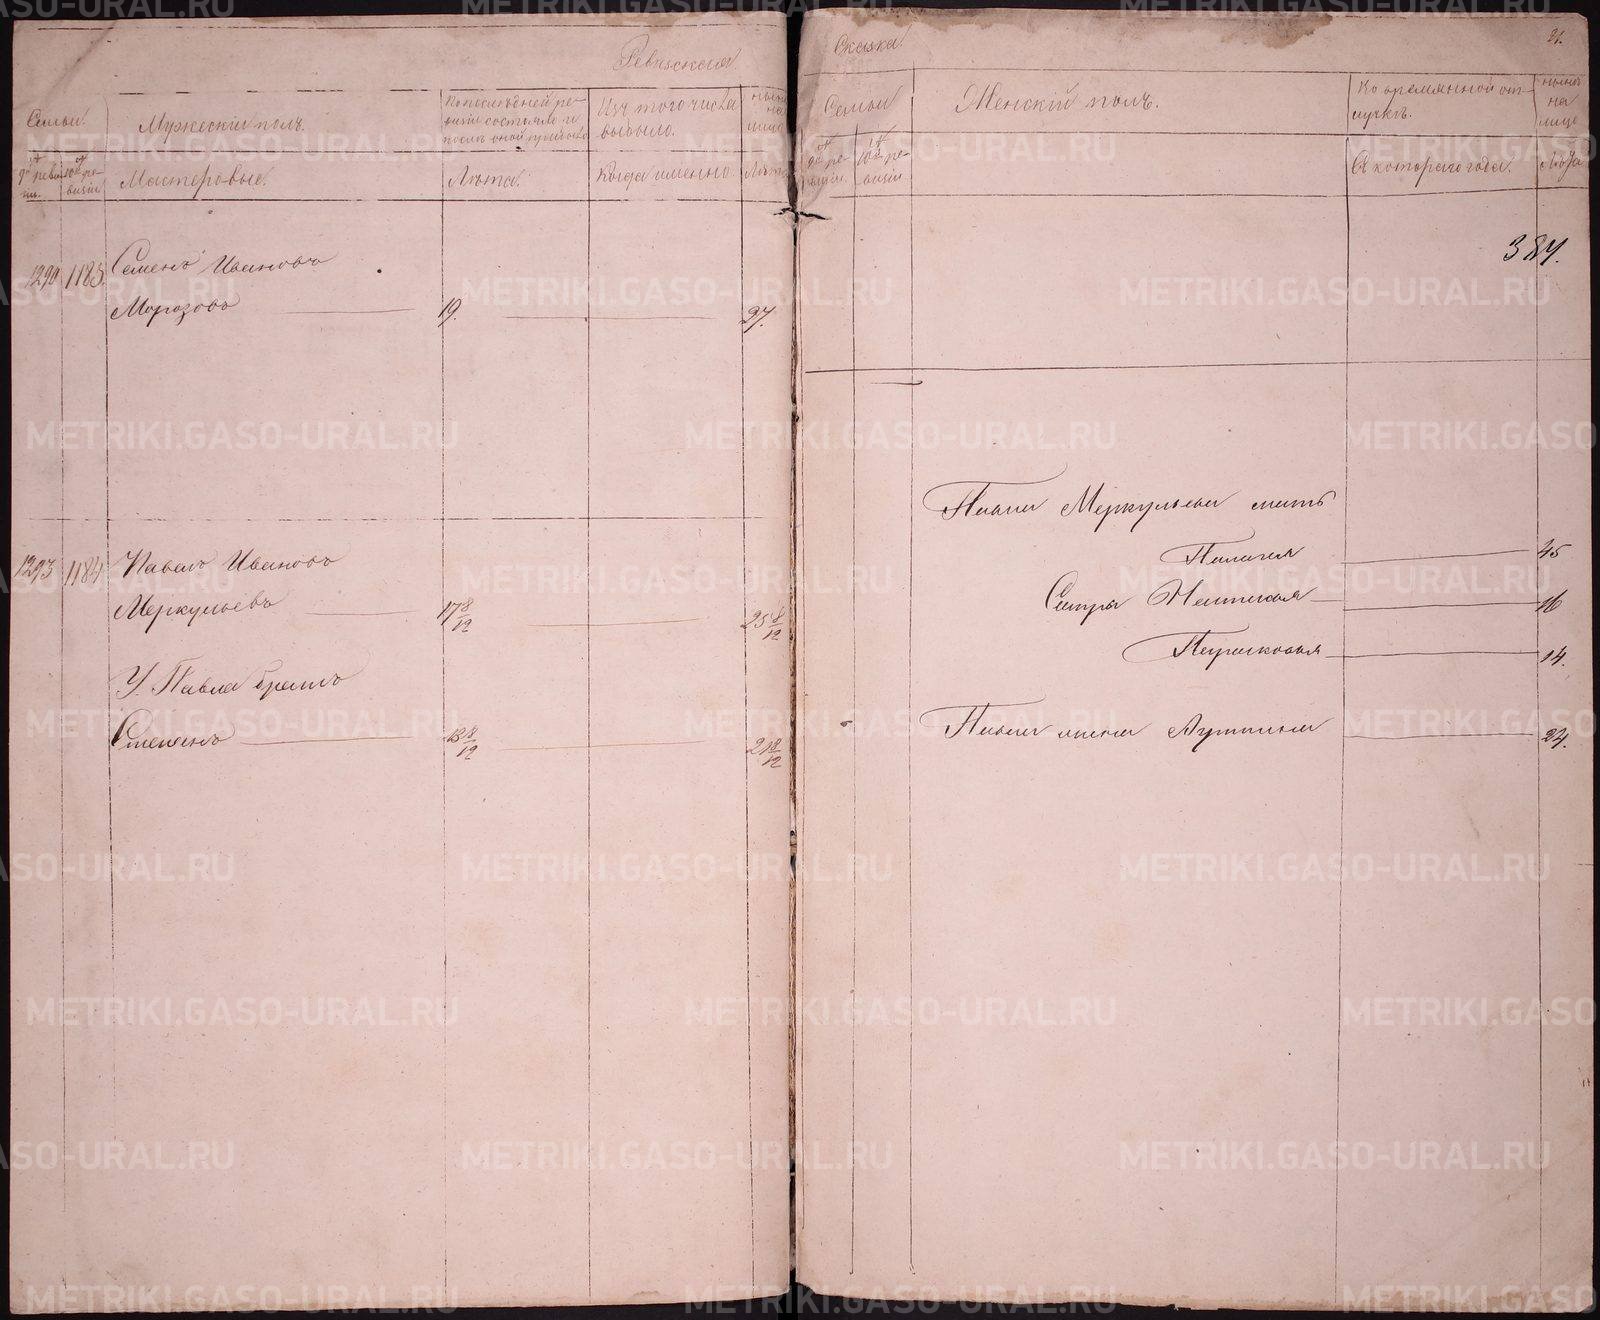 Ревизская
Семьи.
Мужескій полъ.
По последней ре-
визіи состояло и
после оной прибыло
Изъ того числа
выбыло.
ныне
на
лицо
9й реви-
зіи.
10й ре-
визіи
Мастеровые.
Лѣта.
Когда именно.
Лѣта
1290 1183. Семенъ Ивановъ
Морозовъ 19. 27.
1293 1184 Павелъ Ивановъ
Меркульевъ 17 8/12 25 8/12
У Павла братъ
Степенъ 13 8/12 21 8/12
Сказка.
21.
Семьи
Женскій полъ.
Во временной от-
лучкѣ.
ныне
на
лицо
9й ре-
визіи.
10й ре-
визіи
Съ котораго года.
Лѣта
384.
Павла Меркульева мать
Палагея 45
Сестры Настасья 16
Парасковья 14.
Павла жена 24.
METRIKI.GASO-URAL.RU